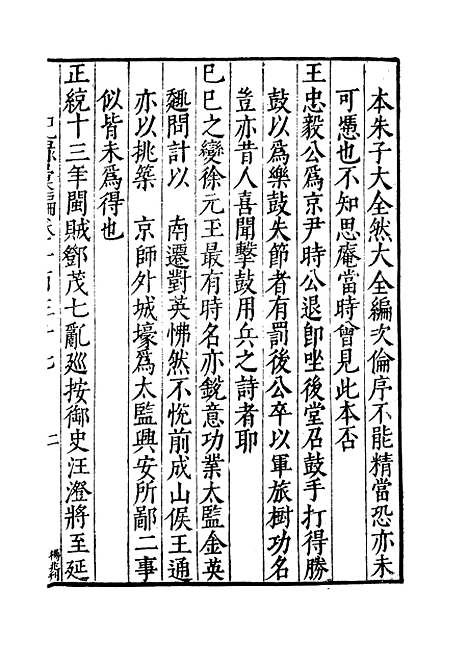 本朱子大全然大全編次倫序不能精當恐亦未
可慿也不知思庵當時曾見此本否
王忠毅公爲京尹時公退卽坐後堂召鼓手打得勝
鼓以爲樂鼓失節者有罰後公卒以軍旅樹功名
豈亦昔人喜聞擊鼓用兵之詩者耶
已巳之變徐元玉最有時名亦銳意功業太監金英
趣問計以 南遷對英怫然不悅前成山侯王通
亦以挑築 京師外城壕爲太監興安所鄙二事
似皆未爲得也
正統十三年閩賊鄧茂七亂廵按御史汪澄將至延
二